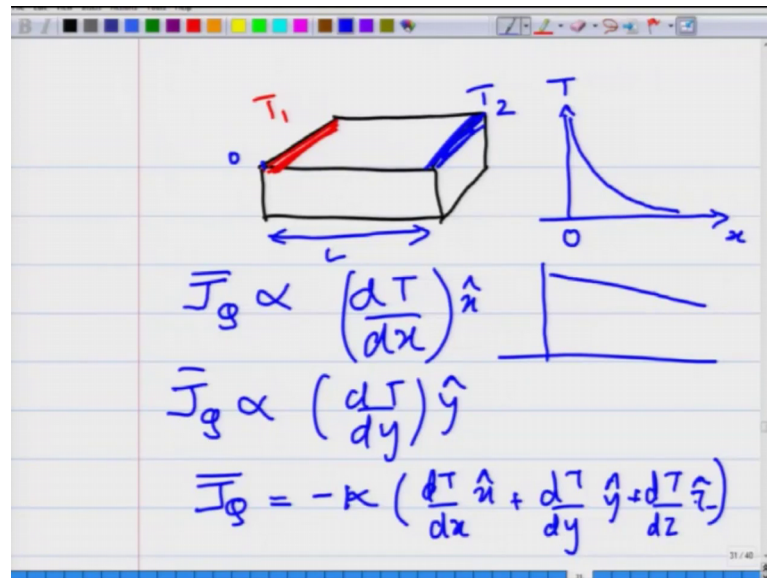 T₁ T₂ T
0
0 x
L
J̄_Q ∝ (dT/dx) x̂
J̄_Q ∝ (dT/dy) ŷ
J̄_Q = -κ (dT/dx x̂ + dT/dy ŷ + dT/dz ẑ)
31 / 40